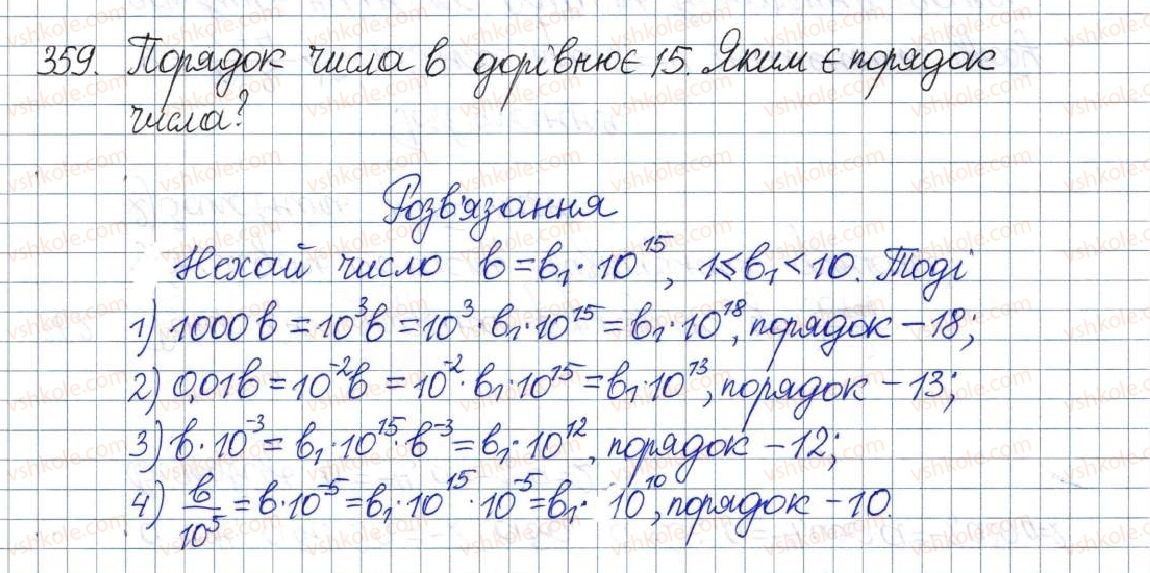 359. Порядок числа в дорівнює 15. Яким є порядок
числа?
Розв'язання
Нехай число в = в₁ · 10¹⁵, 1 ≤ в₁ < 10. Тоді
1) 1000в = 10³в = 10³ · в₁ · 10¹⁵ = в₁ · 10¹⁸, порядок – 18;
2) 0,01в = 10⁻²в = 10⁻² · в₁ · 10¹⁵ = в₁ · 10¹³, порядок – 13;
3) в · 10⁻³ = в₁ · 10¹⁵ · в⁻³ = в₁ · 10¹², порядок – 12;
4) в/10⁵ = в · 10⁻⁵ = в₁ · 10¹⁵ · 10⁻⁵ = в₁ · 10¹⁰, порядок – 10.